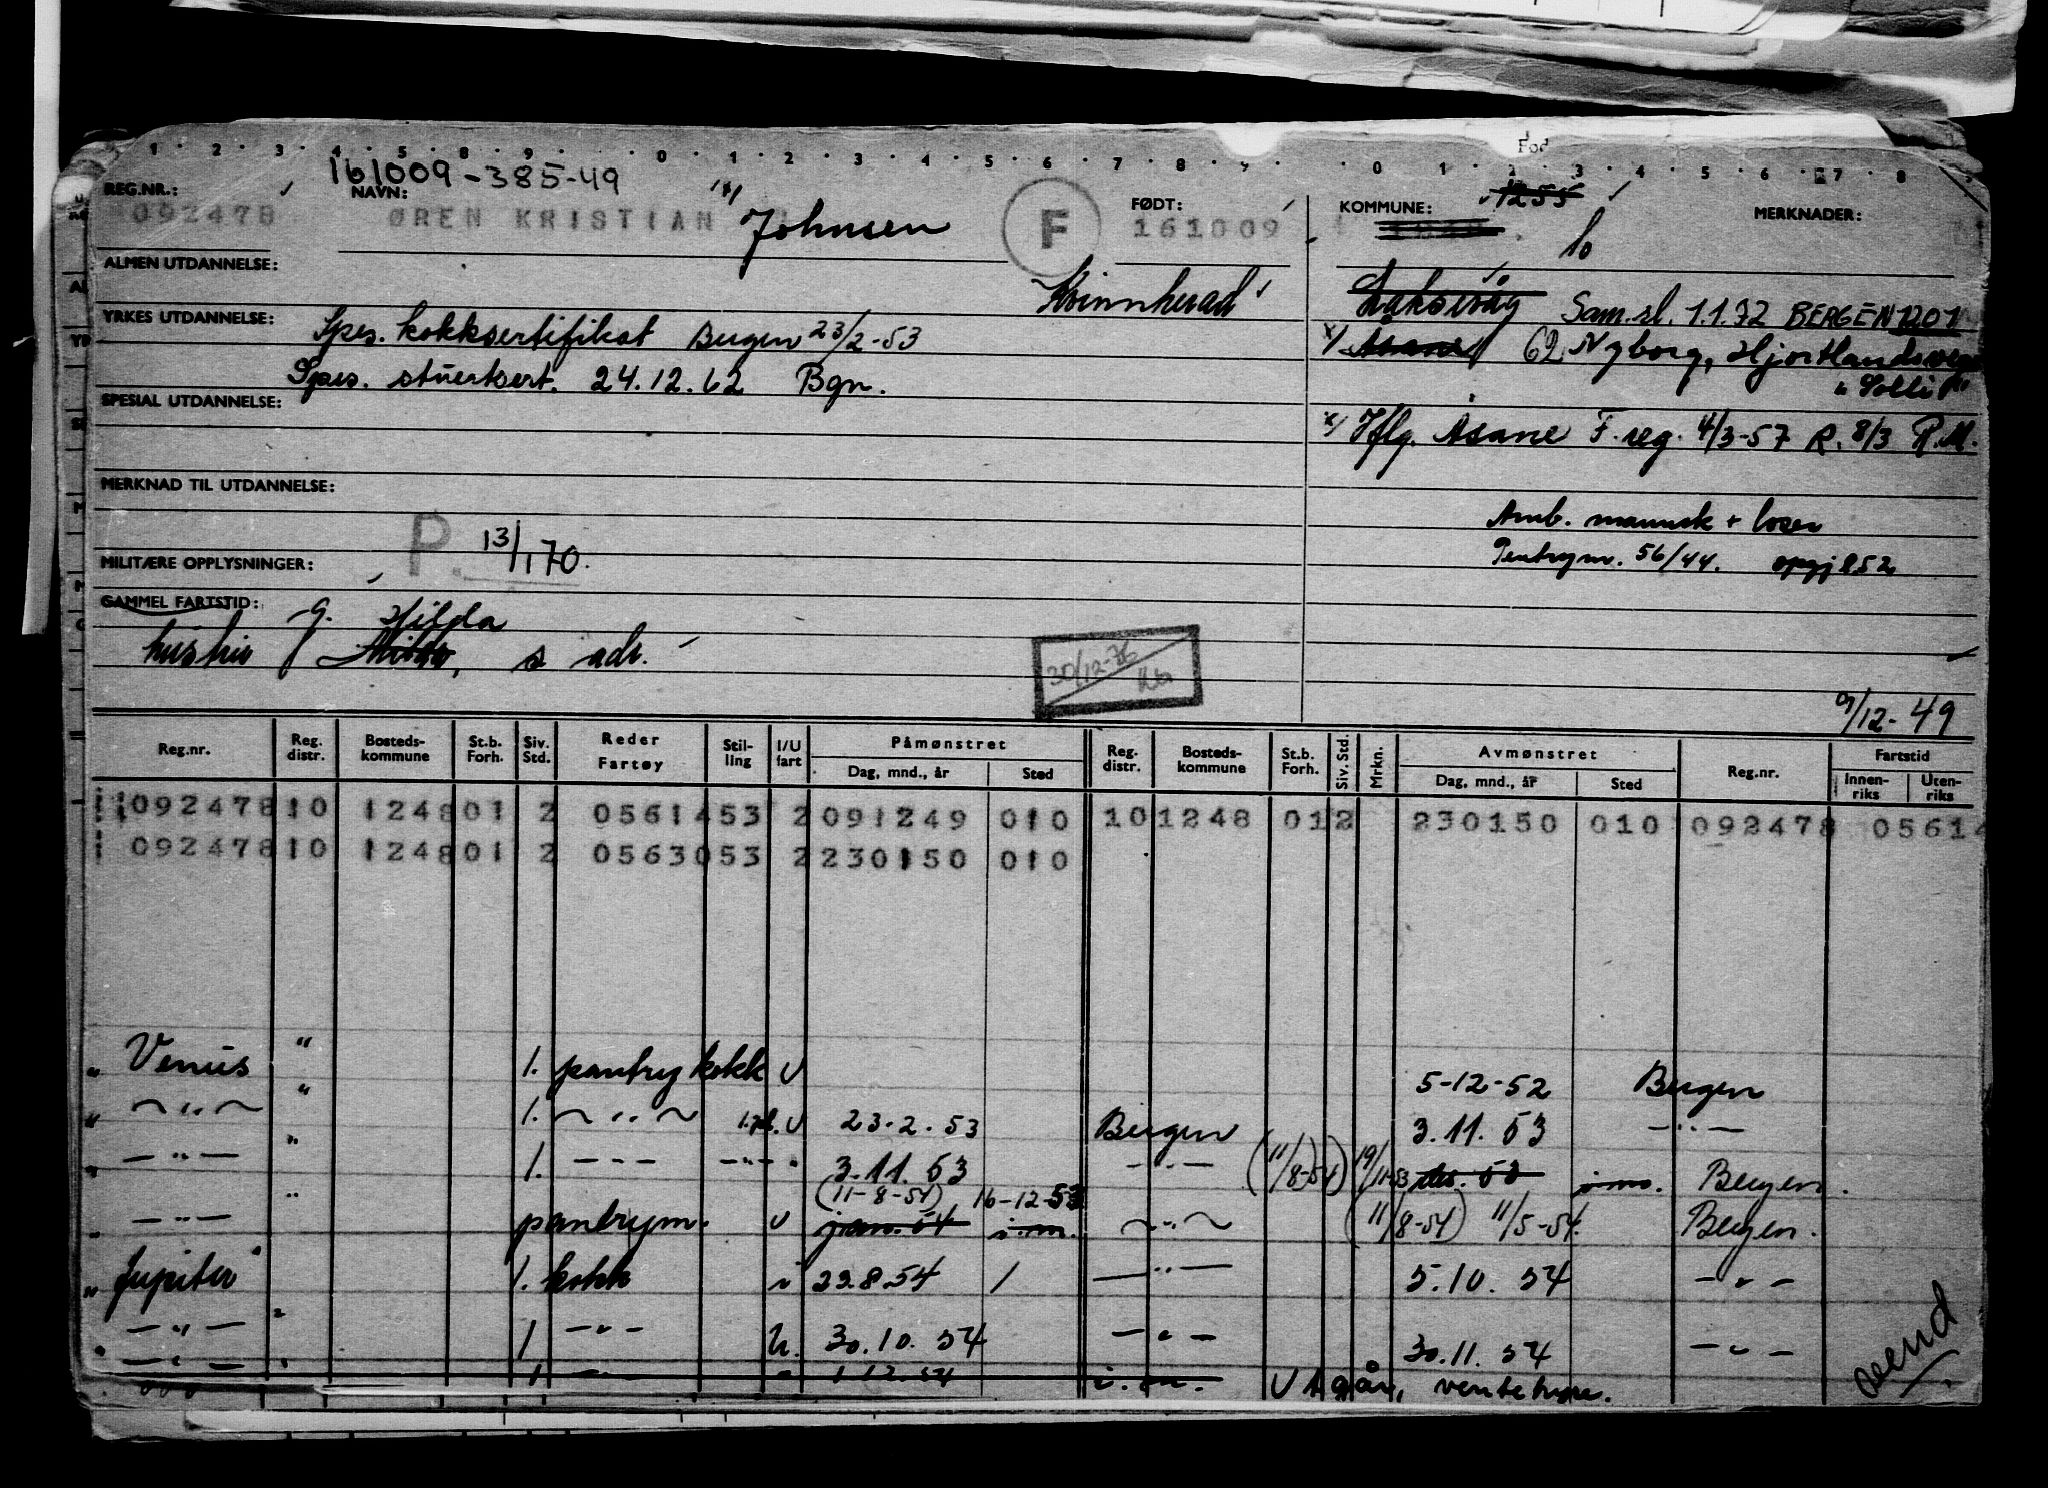 Fød
1 2 3 4 5 8 9 0 1 2 3 4 5 6 7 8 9 0 1 2 3 4 5 6 7 8
161009-385-49
REG.NR.: NAVN: FØDT: KOMMUNE: 1255 MERKNADER:
092478 ØREN KRISTIAN Johnsen F 161009
ALMEN UTDANNELSE:
Kvinnherad
Laksevåg Sam.sl. 1.1.72 BERGEN 1201
YRKES UTDANNELSE: Spes. kokksertifikat Bergen 23/2-53
x/ Åsane 62 Nyborg, Hjortlandsvegen
Spes. stuertsert. 24.12.62 Bgn.
"Solli"
SPESIAL UTDANNELSE:
x/ Iflg. Åsane F. reg. 4/3-57 R. 8/3 R.M.
MERKNAD TIL UTDANNELSE:
P. 13/1 70.
Pentrym. 56/44.
MILITÆRE OPPLYSNINGER:
GAMMEL FARTSTID: G. Hilda
hustru s adr.
30/12-76
9/12-49
Reg.nr. Reg. distr. Bosteds-kommune St.b. Forh. Siv. Std. Reder Fartøy Stil-ling I/U fart Påmønstret Dag, mnd., år Sted Reg. distr. Bosteds-kommune St.b. Forh. Siv. Std. Mrkn. Avmønstret Dag, mnd., år Sted Reg.nr. Fartstid Innen-riks Uten-riks
092478 10 1248 01 2 05614 53 2 091249 010 10 1248 01 2 230150 010 092478 05614
092478 10 1248 01 2 05630 53 2 230150 010
" Venus " 1. pantry kokk U 5-12-52 Bergen
" — " — " 1. — " — U 23.2.53 Bergen 3.11.53 — " —
" — " — " 1. — — — — " — " 3.11.53 — " — (11/8-54) 19/11-53 des. 53 i.m. Bergen.
(11-8-54) 16-12-53
" — " — " pantrym. U jan. 54 i.m. — " — (11/8-54) 11/5-54. Bergen.
" Jupiter " 1. kokk i 29.8.54 / — " — 5.10.54 — " —
— " — " 1 — " — U. 30.10.54 — " — 30.11.54 — " —
" — " — " 1 — — " 1.12.54 i.m. Utgår, ventehyre.
vend